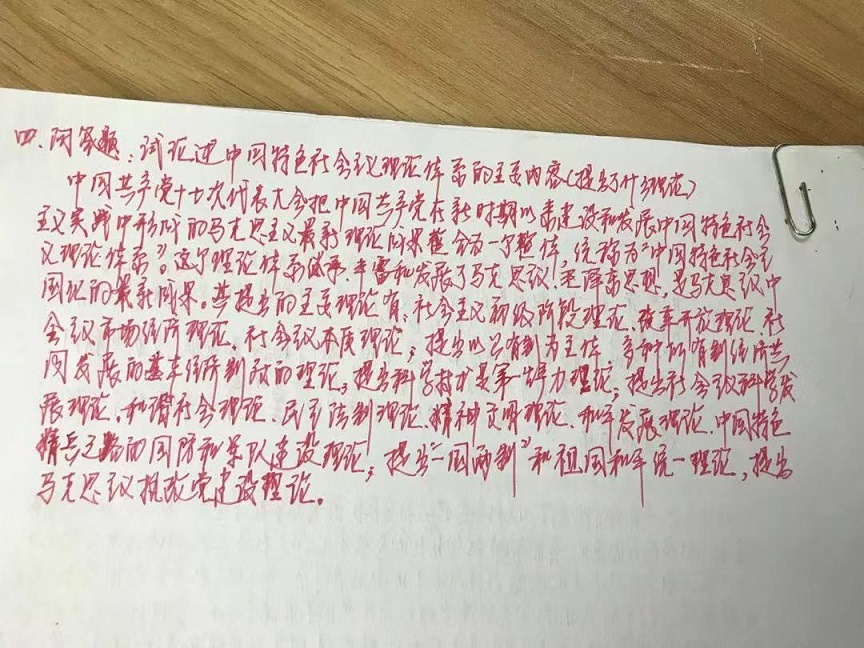 四.问答题：试论述中国特色社会主义理论体系的主要内容(提出了什么理论)
中国共产党十七次代表大会把中国共产党在新时期以来建设和发展中国特色社会
主义实践中形成的马克思主义最新理论成果整合为一个整体，统称为"中国特色社会主
义理论体系"。这个理论体系继承、丰富和发展了马克思主义、毛泽东思想，是马克思主义中
国化的最新成果。其提出的主要理论有：社会主义初级阶段理论、改革开放理论、社
会主义市场经济理论、社会主义本质理论；提出以公有制为主体 多种所有制经济共
同发展的基本经济制度的理论；提出科学技术是第一生产力理论；提出社会主义科学发
展理论、和谐社会理论、民主法制理论、精神文明理论、和平发展理论、中国特色
精兵之路的国防和军队建设理论；提出"一国两制"和祖国和平统一理论，提出
马克思主义执政党建设理论。